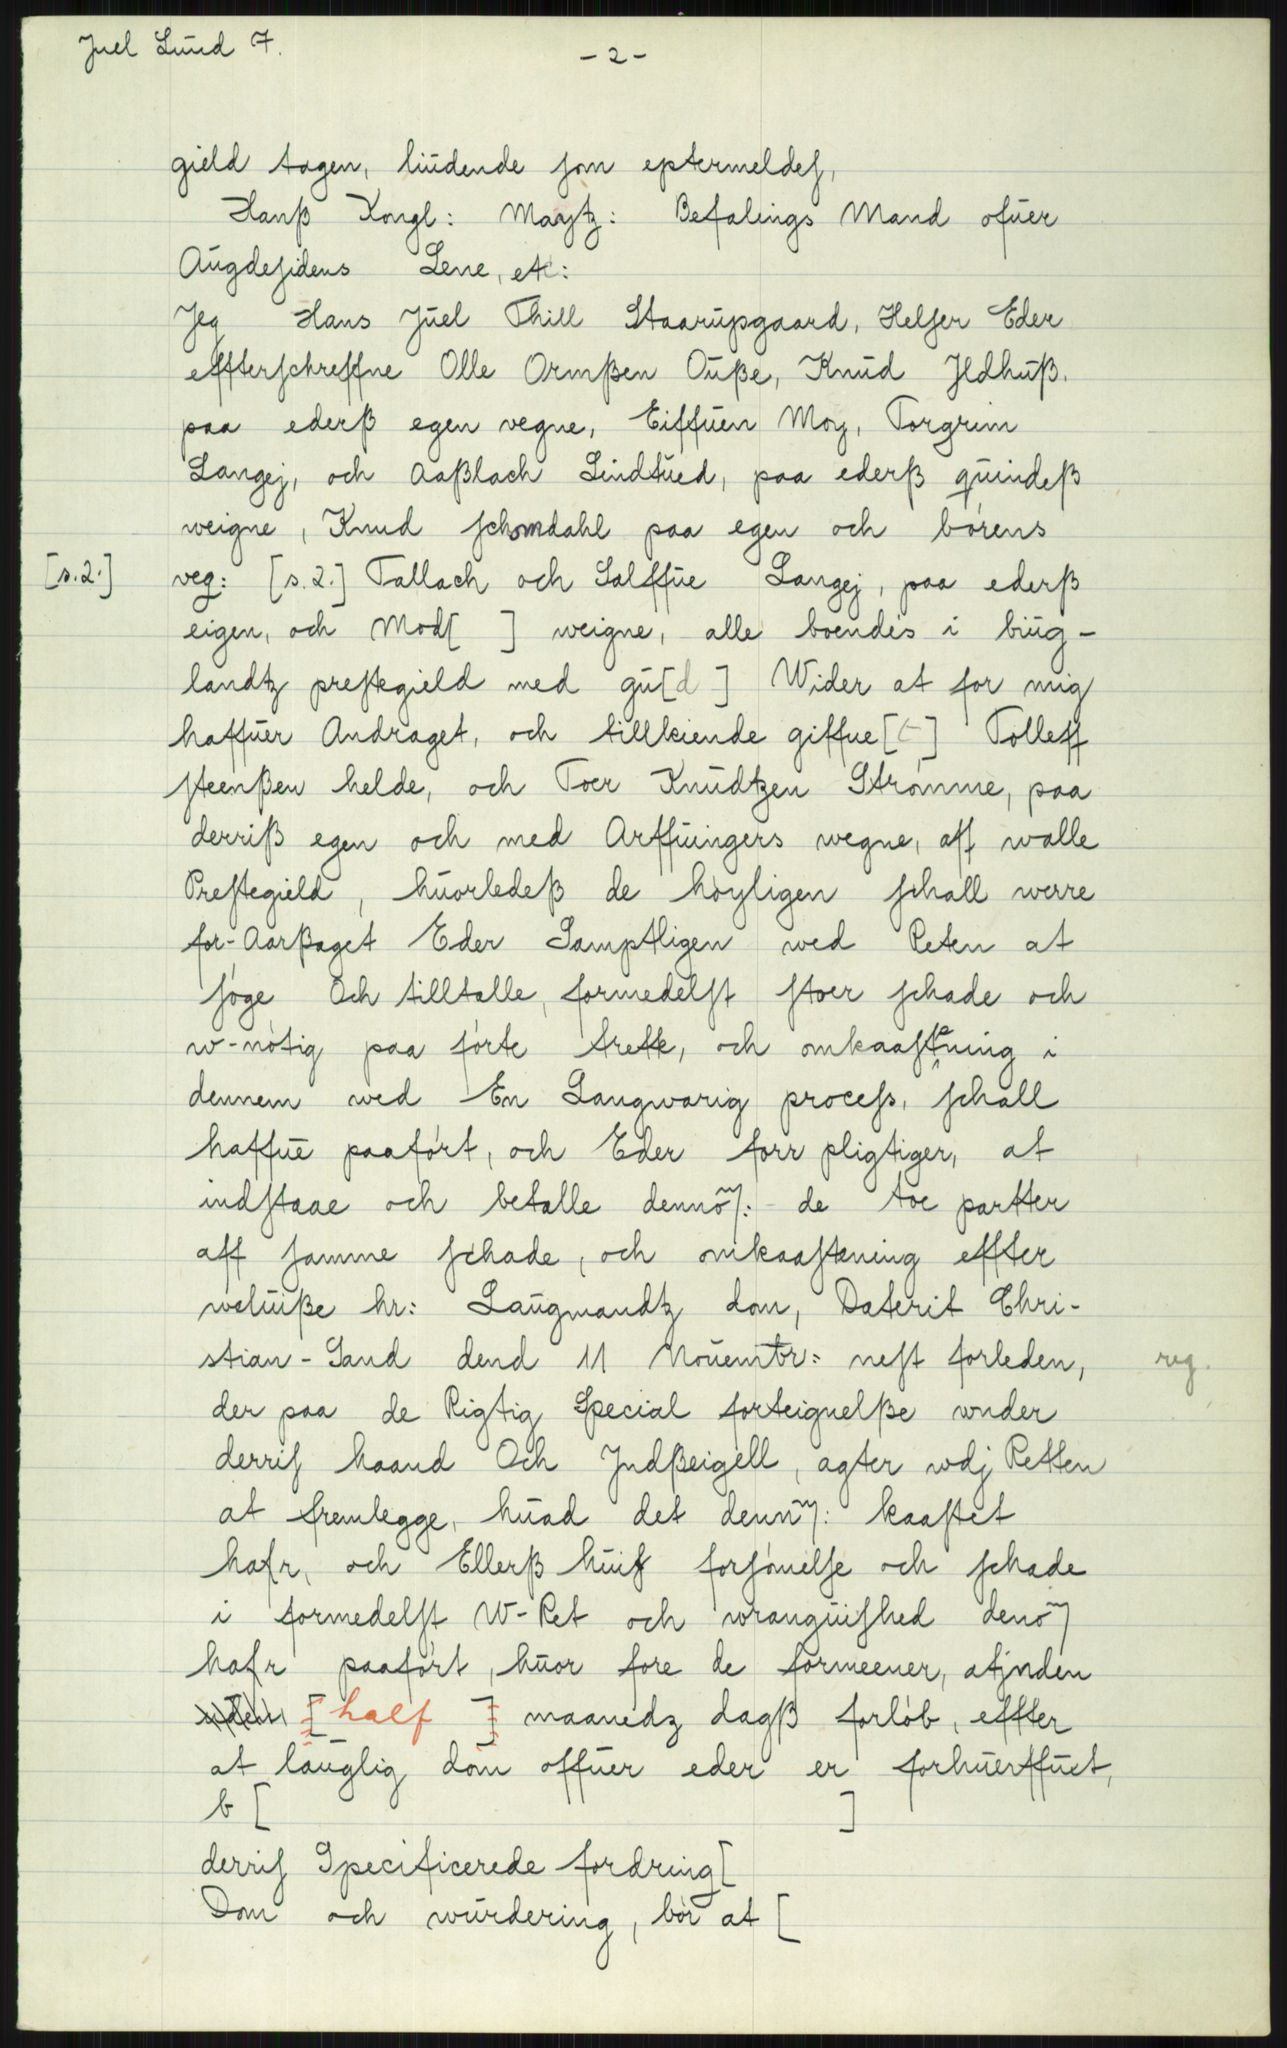 Juel Lund 7.
- 2 -
gield tagen, liudende som eptermeldes,
Hanß Kongl: Maytz: Befalings Mand ofuer
Augdesidens Lene, etc:
Jeg Hans Juel Thill Staarupgaard, Helser Eder
effterschreffne Olle Ormßen Oußе, Knud Jldhuß.
paa ederß egen vegne, Eiffuen Moy, Torgrim
Langej, och Aaßlach Lindtued, paa ederß quindeß
weigne, Knud schomdahl paa egen och börens
[s.2.] veg: [s.2.] Tallach och Salffue Langej, paa ederß
eigen, och Mod[ ] weigne, alle boendes i biug-
landtz prestegield med gu[d ] Wider at for mig
haffuer Andraget, och tillkiende giffue[t] Tolleff
steenßen helde, och Toer Knudtzen Strömme, paa
derriß egen och med Arffuingers wegne, aff walle
Prestegield, huorledeß de höyligen schall werre
for-Aarßaget Eder Samptligen wed Reten at
söge Och tilltalle, formedelst stoer schade och
w-nötig paa förte trette, och omkaastening i
dennem wed En Langwarig process, schall
haffue paafört, och Eder forr pligtiger, at
indstaae och betalle dennöm: de toe partter
aff samme schade, och omkaastning effter
weluiße hr: Laugmandtz dom, Daterit Chri-
stian-Sand dend 11 Nouembr: nest forleden, reg.
der paa de Rigtig Special forteignelße wnder
derris haand Och Jndßeigell, agter wdj Retten
at fremlegge, huad det dennm: kaastet
hafr, och Ellerß huis forsömelse och schade
i formedelst W-Ret och wranguished denöm
hafr paafört, huor fore de formeener, atjnden
[half ] maanedz dagß forlöb, effter
at lauglig dom offuer eder er forhuerffuet,
b [ ]
derris Specificerede fordring[
Dom och wurdering, bör at [